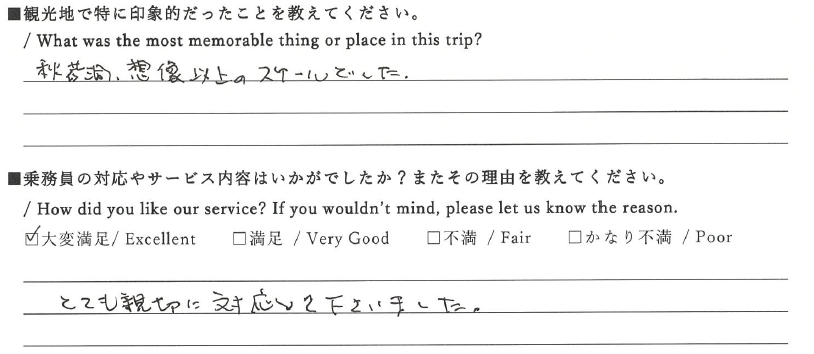 ■観光地で特に印象的だったことを教えてください。
/ What was the most memorable thing or place in this trip?
秋芳洞、想像以上のスケールでした.
■乗務員の対応やサービス内容はいかがでしたか？またその理由を教えてください。
/ How did you like our service? If you wouldn't mind, please let us know the reason.
☑大変満足/ Excellent □満足 / Very Good □不満 / Fair □かなり不満 / Poor
とても親切に対応して下さいました。